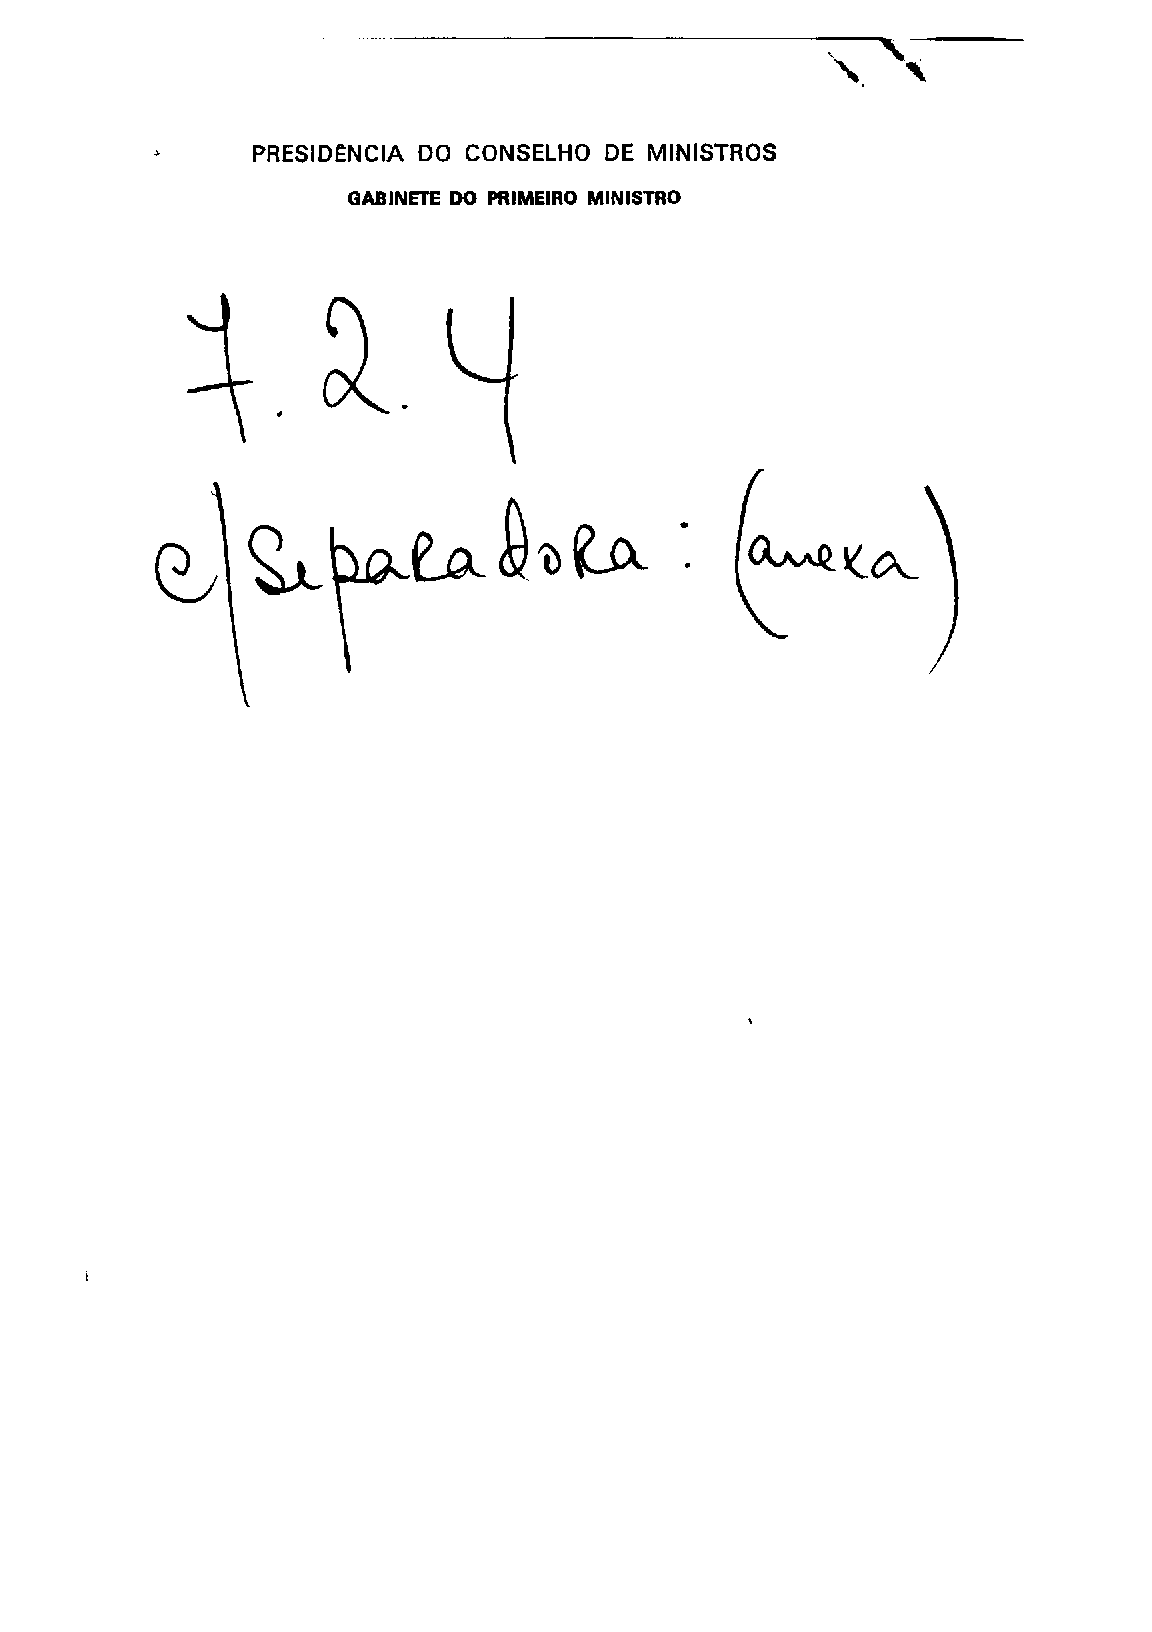 PRESIDÊNCIA DO CONSELHO DE MINISTROS
GABINETE DO PRIMEIRO MINISTRO
7.2.4
c/ Separadora: (anexa)